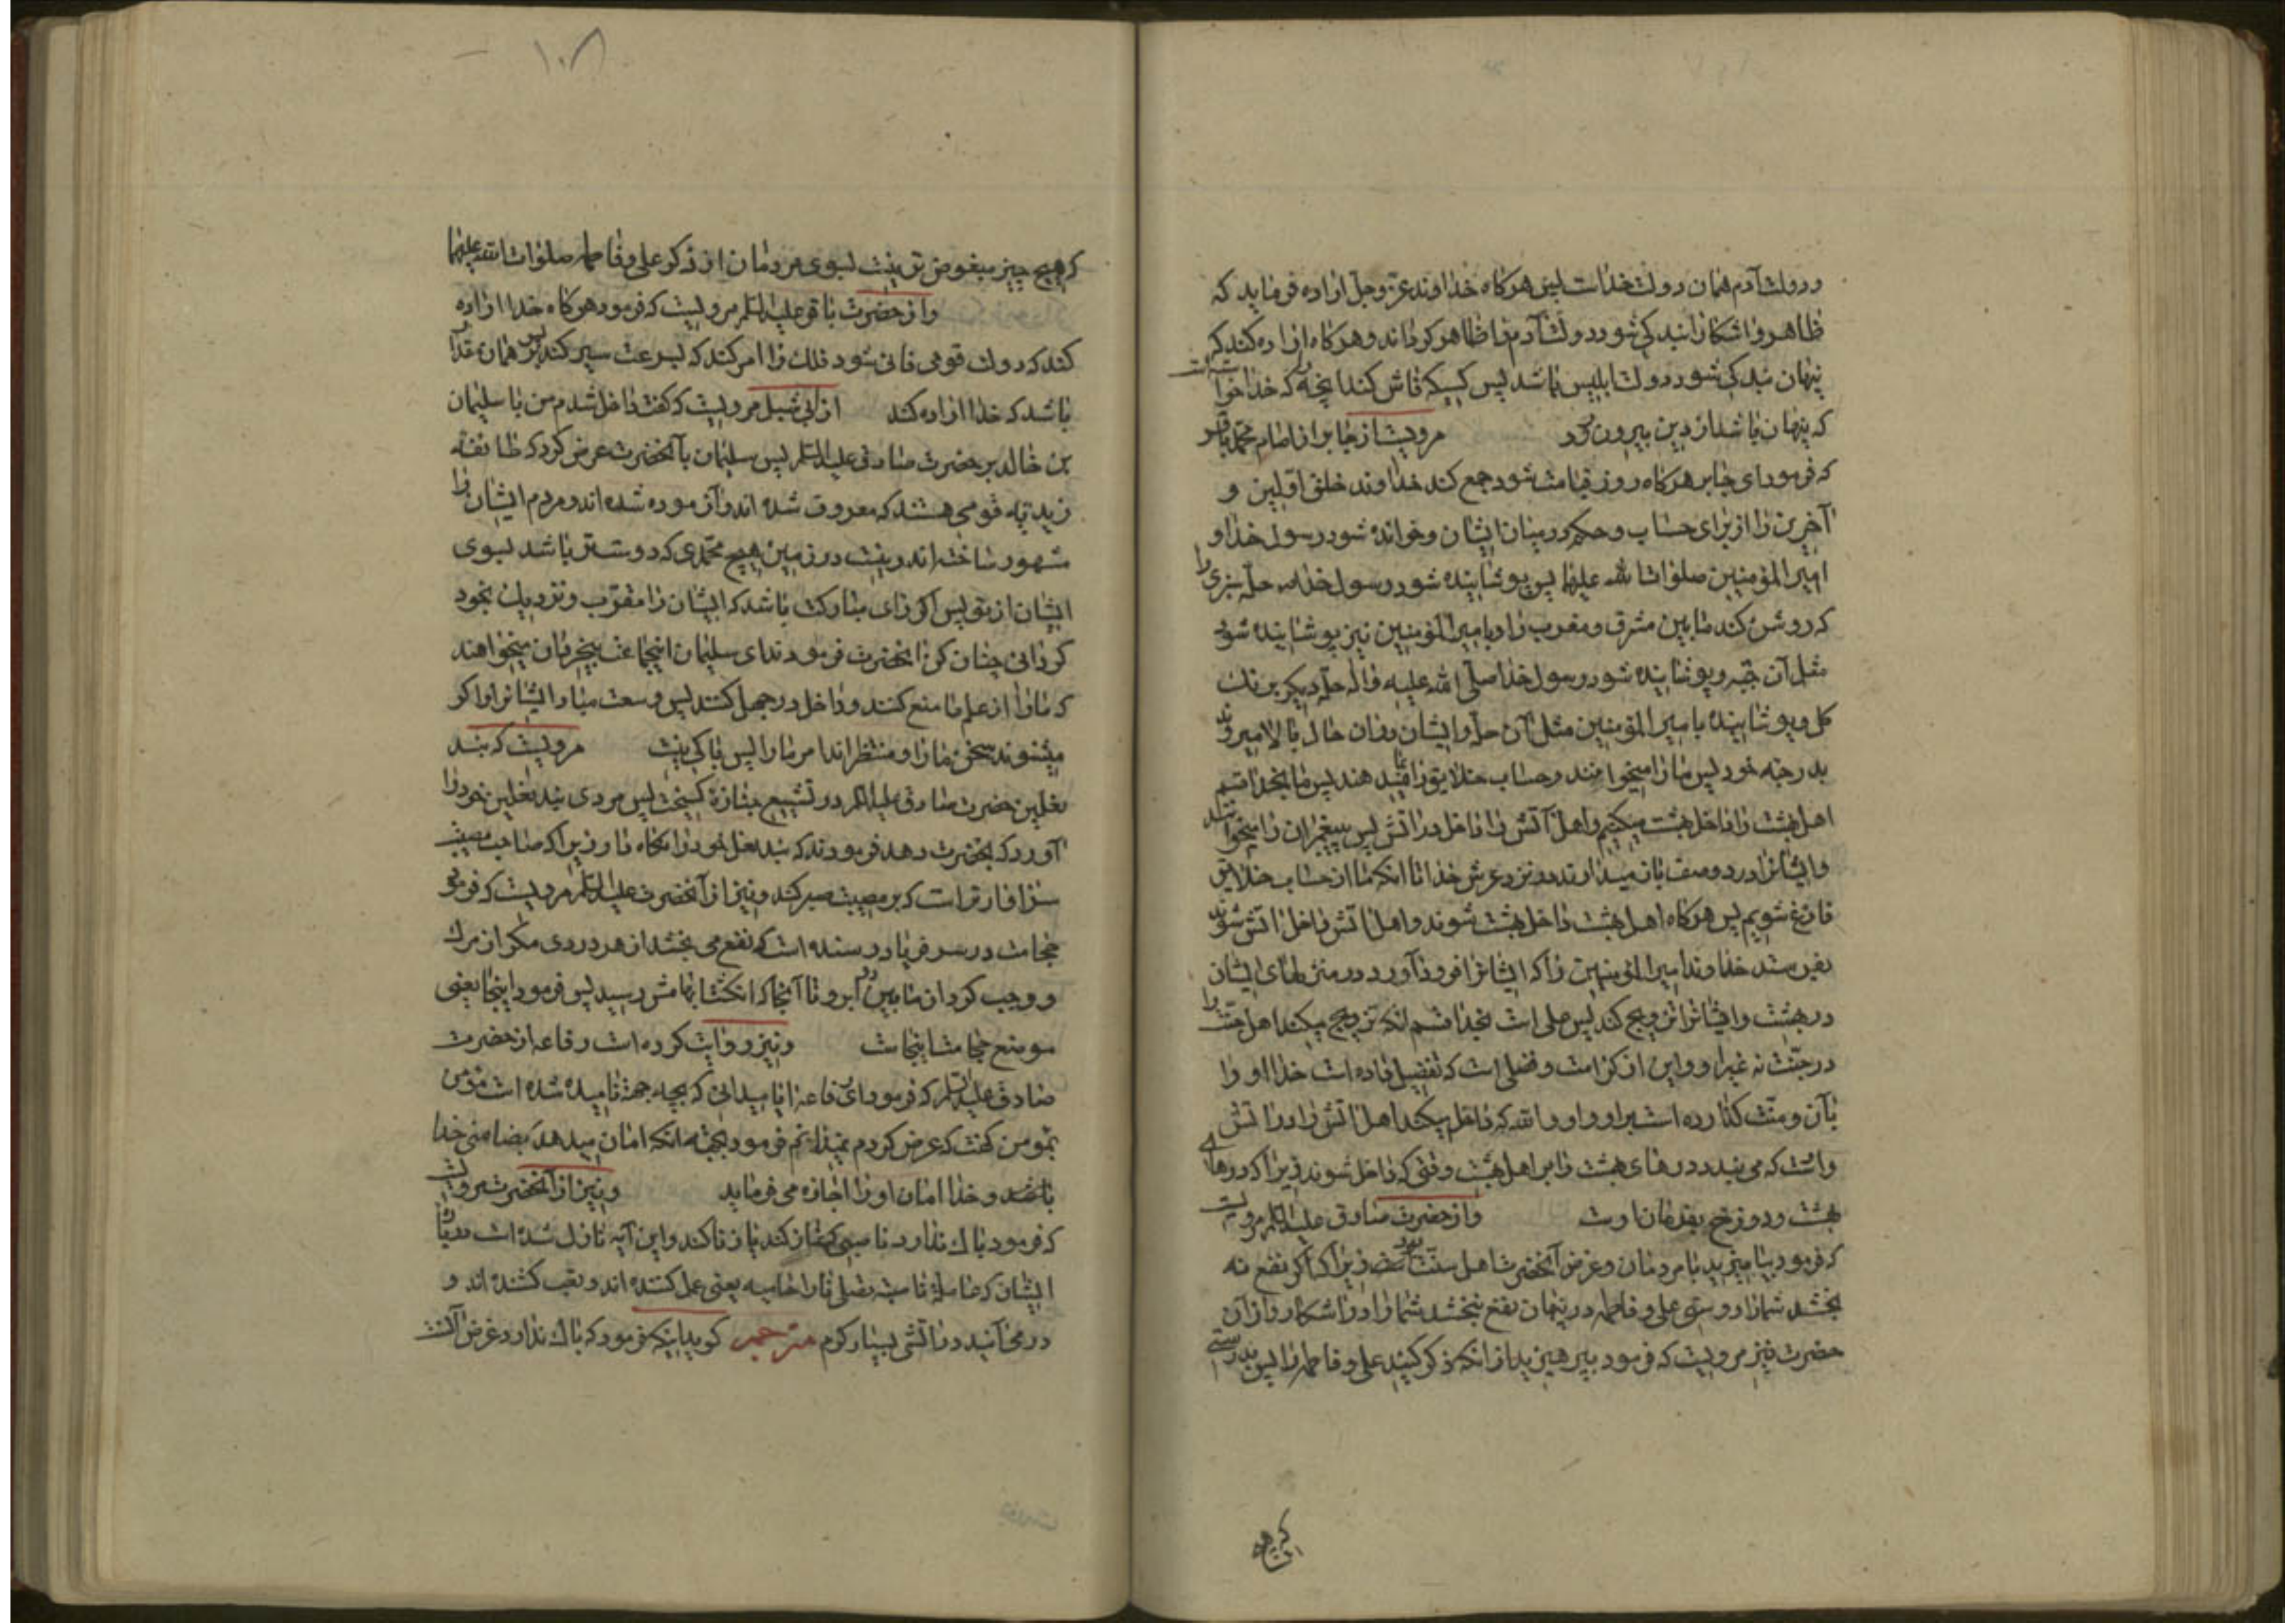 ودولت آدم همان دولت خداست پس هرکاه خداوند عزّ وجلّ اراده فرماید که
ظاهر و اشکارا بندکی شود دولت آدم را ظاهر کرداند و هرکاه اراده کند که
پنهان بندکی شود دولت ابلیس باشد پس کسیکه فاش کند آنچه را که خدا خواسته است
که پنهان باشد از دین بیرون رود مرویست از جابر از امام محمّد باقر
که فرمود ای جابر هرکاه روز قیامت شود جمع کند خداوند خلق اوّلین و
آخرین را از برای حساب و حکم در میان ایشان و خوانده شود رسول خدا و
امیرالمؤمنین صلوات الله علیهما پس پوشانیده شود رسول خدا ص حلّه سبزی را
که روشن کند مابین مشرق و مغرب را و بامیرالمؤمنین نیز پوشانیده شود
مثل آن جبّه و پوشانیده شود رسول خدا صلّی الله علیه و اله حلّه دیکر برنک
کل و پوشانیده بامیرالمؤمنین مثل آن حلّه و ایشان در آن حال بالا میروند
بدرجه خود پس ما را میخوانند و حساب خلایق را بما میدهند پس ما بخدا قسم
اهل بهشت را داخل بهشت میکنیم و اهل آتش را داخل در آتش پس پیغمبران را میخوانند
و ایشانرا در دو صف باز میدارند در نزد عرش خدا تا انکه ما از حساب خلایق
فارغ شویم پس هرکاه اهل بهشت داخل بهشت شوند و اهل آتش داخل آتش شوند
بفرستد خداوند امیرالمؤمنین را که ایشانرا فرود آورد در منزلهای ایشان
در بهشت و ایشانرا تزویج کند پس علی است بخدا قسم انکه تزویج میکند اهل جنّت را
در جنّت نه غیر او و این از کرامت و فضلی است که تفضیل داده است خدا او را
بآن و منّت کذارده است بر او و او والله که داخل میکند اهل آتش را در آتش
و اوست که می بندد درهای بهشت را بر اهل بهشت وقتی که داخل شوند زیرا که درهای
بهشت و دوزخ بفرمان اوست و از حضرت صادق علیه السلم مرویست
که فرمود بیامیزید با مردمان و غرض آنحضرت اهل سنّت بود زیرا که اکر نفع نه
بخشد شما را دوستی علی و فاطمه در پنهان نفع نبخشد شما را در اشکار و از آن
حضرت نیز مرویست که فرمود بپرهیزید از انکه ذکر کنید علی و فاطمه را پس بدرستی
که هیچ
۱۰۸
که هیچ چیز مبغوض تر نیست بسوی مردمان از ذکر علی و فاطمه صلوات الله علیهما
و از حضرت باقر علیه السلم مرویست که فرمود هرکاه خدا اراده
کند که دولت قومی فانی شود فلک را امر کند که بسرعت سیر کند پس بر همان قدر
باشد که خدا اراده کند از ابی شبل مرویست که کفت داخل شدم من با سلیمان
بن خالد بر حضرت صادق علیه السلم پس سلیمان بآنحضرت عرض کرد که طائفه
زیدیّه قومی هستند که معروف شده اند و آزموده شده اند و مردم ایشان را
مشهور ساخته اند و نیست در زمین هیچ محمّدی که دوست تر باشد بسوی
ایشان از تو پس اکر رای مبارکت باشد که ایشان را مقرّب و نزدیک بخود
کردانی چنان کن آنحضرت فرمودند ای سلیمان اینجماعت بیخردان میخواهند
که ما را از علم ما منع کنند و داخل در جهل کنند پس وسعت مباد ایشانرا و اکر
میشنوند سخن ما را و منتظراند امر ما را پس باکی نیست مرویست که بند
نعلین حضرت صادق علیه السلم در تشییع جنازهٔ کسیخت پس مردی بند نعلین خود را
آورد که بآنحضرت دهد فرمودند که بند نعل خود را نکاه دار زیرا که صاحب مصیبت
سزاوارتر است که بر مصیبت صبر کند و نیز از آنحضرت علیه السلم مرویست که فرمود
حجامت در سر فریادرسنده است که نفع می بخشد از هر دردی مکر از مرک
و وجب کرد از مابین دو ابرو تا آنجا که انکشت ابهامش رسید پس فرمود اینجا یعنی
موضع حجامت اینجاست و نیز روایت کرده است رفاعه از حضرت
صادق علیه السلم که فرمود ای رفاعه ایا میدانی که بچه جهة نامیده شده است مؤمن
بمؤمن کفت که عرض کردم نمیدانم فرمود بجهة انکه امان میدهد بضامنی خدا
باشد و خدا امان او را اجازه می فرماید و نیز از آنحضرت مرویست
که فرمود باک ندارد ناصبی که نماز کند یا زنا کند و این آیه نازل شده است در باب
ایشان که عاملة ناصبة تصلی نارا حامیه یعنی عمل کننده اند و تعب کشنده اند و
در می آیند در آتشی بسیار کرم مترجم کوید اینکه فرمود که باک ندارد غرض آنست